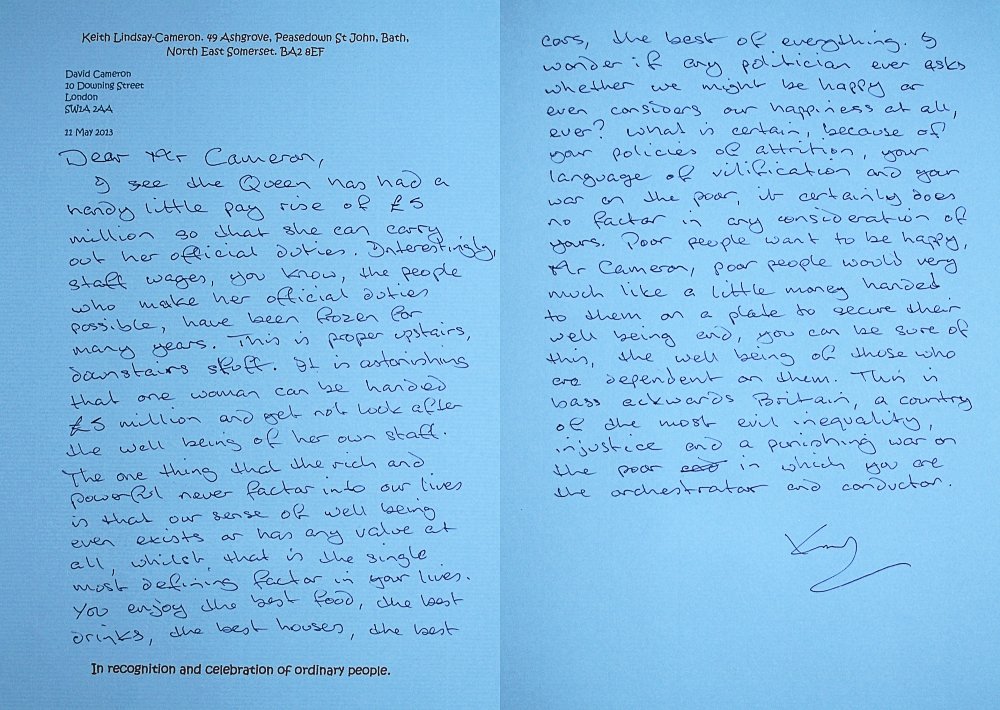 Keith Lindsay-Cameron. 49 Ashgrove, Peasedown St John, Bath,
North East Somerset. BA2 8EF
David Cameron
10 Downing Street
London
SW1A 2AA
11 May 2013
Dear Mr Cameron,
I see the Queen has had a
handy little pay rise of £5
million so that she can carry
out her official duties. Interestingly,
staff wages, you know, the people
who make her official duties
possible, have been frozen for
many years. This is proper upstairs,
downstairs stuff. It is astonishing
that one woman can be handed
£5 million and yet not look after
the well being of her own staff.
The one thing that the rich and
powerful never factor into our lives
is that our sense of well being
even exists or has any value at
all, whilst that is the single
most defining factor in your lives.
You enjoy the best food, the best
drinks, the best houses, the best
In recognition and celebration of ordinary people.
cars, the best of everything. I
wonder if any politician ever asks
whether we might be happy or
even considers our happiness at all,
ever? What is certain, because of
your policies of attrition, your
language of vilification and your
war on the poor, it certainly does
no factor in any consideration of
yours. Poor people want to be happy,
Mr Cameron, poor people would very
much like a little money handed
to them on a plate to secure their
well being and, you can be sure of
this, the well being of those who
are dependent on them. This is
bass ackwards Britain, a country
of the most evil inequality,
injustice and a punishing war on
the poor in which you are
the orchestrator and conductor.